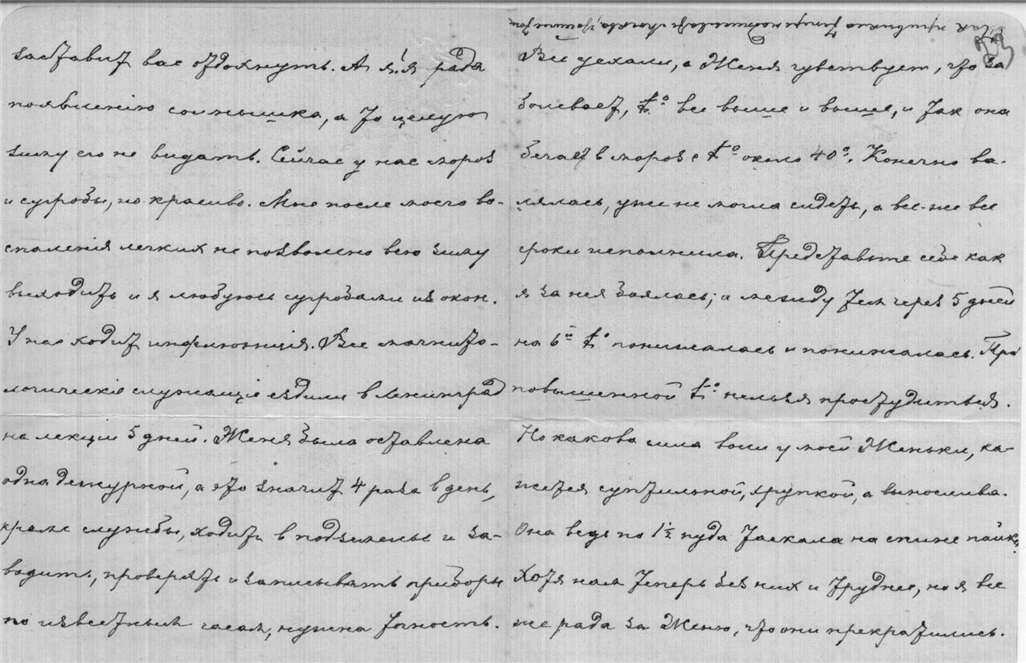 заставит вас отдохнуть. А я и рада
появлению солнышка, а то целую
зиму его не видать. Сейчас у нас мороз
и сугробы, но красиво. Мне после моего во-
спаленiя легких не позволено всю зиму
выходить и я любуюсь сугробами из окон.
У нас ходит инфлюэнцiя. Все магнито-
логическiе служащiе ездили в Ленинград
на лекцiи 5 дней. Женя была оставлена
одна дежурной, а это значит 4 раза в день,
кроме службы, ходить в подземелье и за-
водить, проверять и записывать приборы
по известным часам, нужна точность.
Все уехали, а Женя чувствует, что за-
болевает, t° все выше и выше, и так она
бегает в мороз с t° около 40°. Конечно ва-
лялась, уже не могла сидеть, а все-же все
сроки исполнила. Представьте себе как
я за нея боялась; а между тем через 5 дней
на 6й t° понижалась и понижалась. При
повышенной t° нельзя простудиться.
Но какова сила воли у моей Женьки, ка-
жется субтильной, хрупкой, а вынослива.
Она ведь по 1½ пуда таскала на спине пайки,
Хотя нам теперь без них и труднее, но я все
же рада за Женю, что они прекратились.